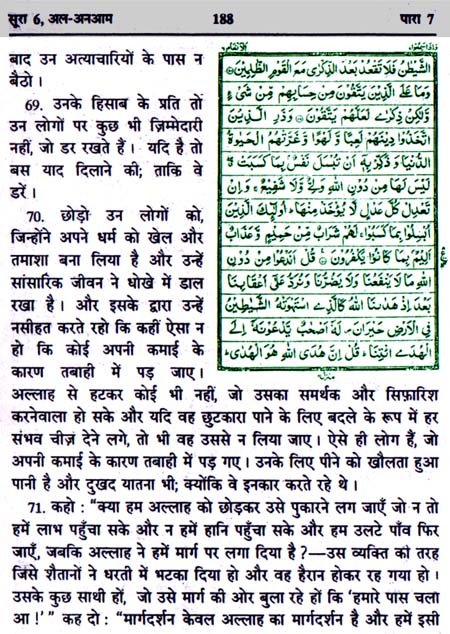 सूरा 6, अल-अनआम 188 पारा 7
बाद उन अत्याचारियों के पास न
बैठो।
69. उनके हिसाब के प्रति तो
उन लोगों पर कुछ भी ज़िम्मेदारी
नहीं, जो डर रखते हैं। यदि है तो
बस याद दिलाने की; ताकि वे
डरें।
70. छोड़ो उन लोगों को,
जिन्होंने अपने धर्म को खेल और
तमाशा बना लिया है और उन्हें
सांसारिक जीवन ने धोखे में डाल
रखा है। और इसके द्वारा उन्हें
नसीहत करते रहो कि कहीं ऐसा न
हो कि कोई अपनी कमाई के
कारण तबाही में पड़ जाए।
الشَّيْطٰنُ فَلَا تَقْعُدْ بَعْدَ الذِّكْرٰى مَعَ الْقَوْمِ الظّٰلِمِيْنَ
وَمَا عَلَى الَّذِيْنَ يَتَّقُوْنَ مِنْ حِسَابِهِمْ مِّنْ شَيْءٍ
وَّلٰكِنْ ذِكْرٰى لَعَلَّهُمْ يَتَّقُوْنَ وَذَرِ الَّذِيْنَ
اتَّخَذُوْا دِيْنَهُمْ لَعِبًا وَّلَهْوًا وَّغَرَّتْهُمُ الْحَيٰوةُ
الدُّنْيَا وَذَكِّرْ بِهٖٓ اَنْ تُبْسَلَ نَفْسٌۢ بِمَا كَسَبَتْ
لَيْسَ لَهَا مِنْ دُوْنِ اللّٰهِ وَلِيٌّ وَّلَا شَفِيْعٌ وَاِنْ
تَعْدِلْ كُلَّ عَدْلٍ لَّا يُؤْخَذْ مِنْهَا اُولٰٓئِكَ الَّذِيْنَ
اُبْسِلُوْا بِمَا كَسَبُوْا لَهُمْ شَرَابٌ مِّنْ حَمِيْمٍ وَّعَذَابٌ
اَلِيْمٌۢ بِمَا كَانُوْا يَكْفُرُوْنَ قُلْ اَنَدْعُوْا مِنْ دُوْنِ
اللّٰهِ مَا لَا يَنْفَعُنَا وَلَا يَضُرُّنَا وَنُرَدُّ عَلٰٓى اَعْقَابِنَا
بَعْدَ اِذْ هَدٰىنَا اللّٰهُ كَالَّذِى اسْتَهْوَتْهُ الشَّيٰطِيْنُ
فِى الْاَرْضِ حَيْرَانَ لَهٗٓ اَصْحٰبٌ يَّدْعُوْنَهٗٓ اِلَى
الْهُدَى ائْتِنَا قُلْ اِنَّ هُدَى اللّٰهِ هُوَ الْهُدٰى
अल्लाह से हटकर कोई भी नहीं, जो उसका समर्थक और सिफ़ारिश
करनेवाला हो सके और यदि वह छुटकारा पाने के लिए बदले के रूप में हर
संभव चीज़ देने लगे, तो भी वह उससे न लिया जाए। ऐसे ही लोग हैं, जो
अपनी कमाई के कारण तबाही में पड़ गए। उनके लिए पीने को खौलता हुआ
पानी है और दुखद यातना भी; क्योंकि वे इनकार करते रहे थे।
71. कहो : "क्या हम अल्लाह को छोड़कर उसे पुकारने लग जाएँ जो न तो
हमें लाभ पहुँचा सके और न हमें हानि पहुँचा सके और हम उलटे पाँव फिर
जाएँ, जबकि अल्लाह ने हमें मार्ग पर लगा दिया है?—उस व्यक्ति की तरह
जिसे शैतानों ने धरती में भटका दिया हो और वह हैरान होकर रह गया हो।
उसके कुछ साथी हों, जो उसे मार्ग की ओर बुला रहे हों कि 'हमारे पास चला
आ!' " कह दो : "मार्गदर्शन केवल अल्लाह का मार्गदर्शन है और हमें इसी